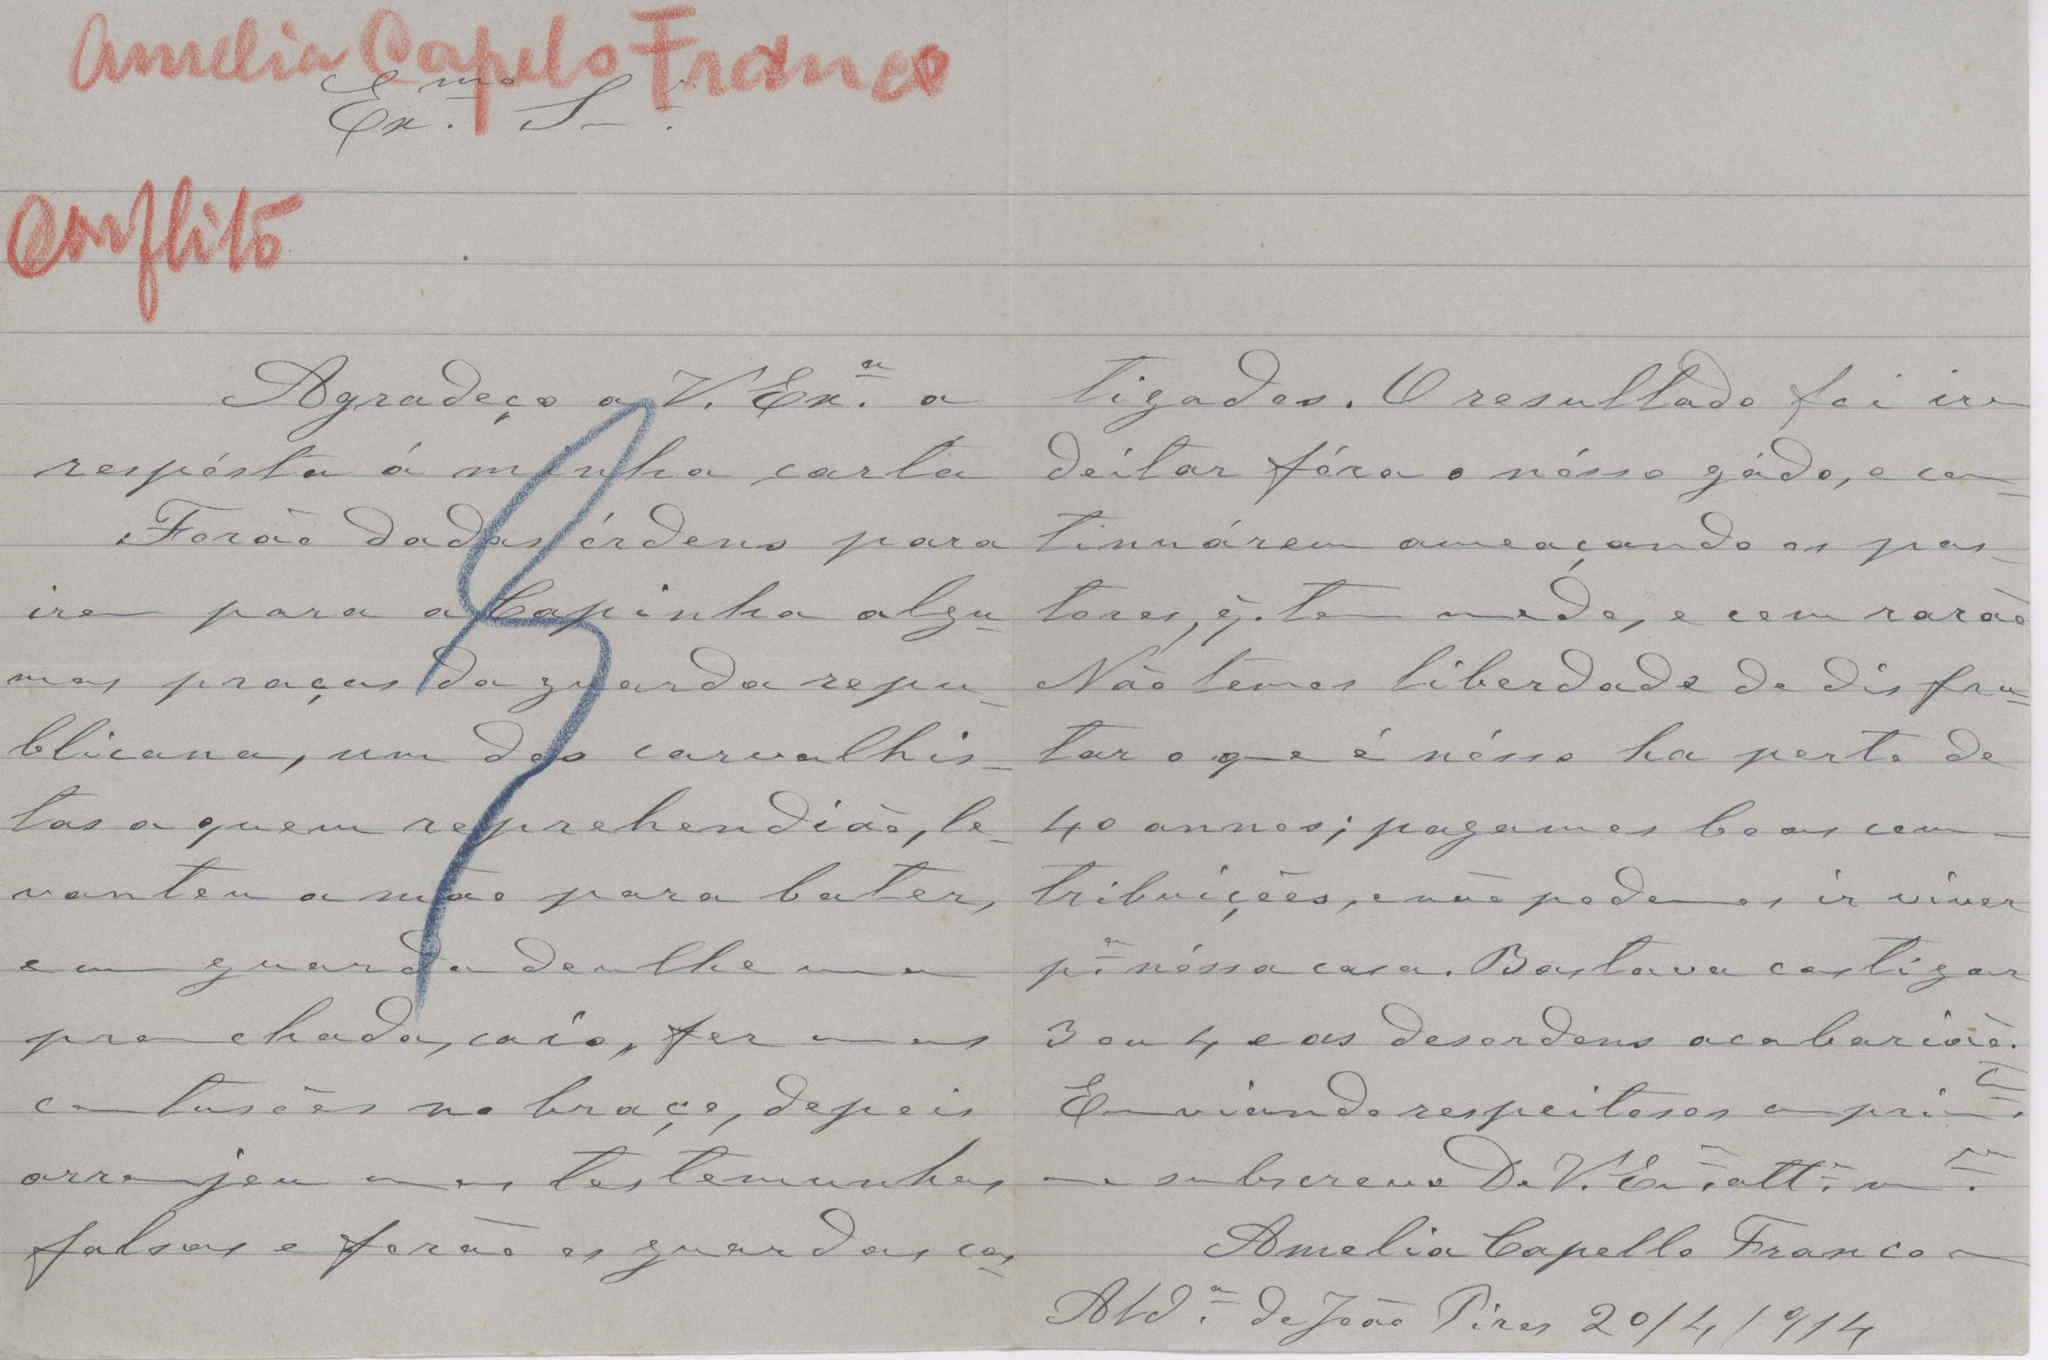 Amelia Capelo Franco
Ex.mo Sr.
Conflito
Agradeço a V. Ex.a a
respósta á minha carta
Forão dadas órdens para
irem para a Capinha algu-
mas praças da guarda repu-
blicana, um dos carvalhis-
tas a quem reprehendião, le-
vantou a mão para bater,
e um guarda deu lhe uma
pranchada, caío, fez umas
contusões no braço, depois
arranjou umas testemunhas
falsas e forão os guardas cas-
tigados. O resultado foi irem
deitar fóra o nósso gádo, e con-
tinuárem ameaçando os pas-
tores, q. tem mêdo, e com razão
Não temos liberdade de disfru-
tar o que é nósso ha perto de
40 annos; pagamos boas con-
tribuições, e não podemos ir viver
p.a nóssa casa. Bastava castigar
3 ou 4 e as desordens acabarião.
Enviando respeitosos cumprim.tos
me subscrevo De V. Ex.a att.a
Amelia Capello Franco
Ald.a de João Pires 20/4/914